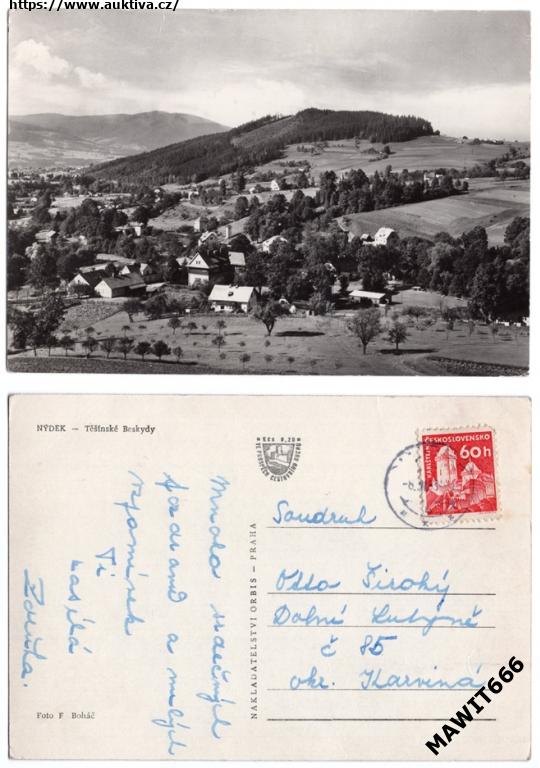 https://www.auktiva.cz/
NÝDEK — Těšínské Beskydy
Kčs 0,20
VE PROSPĚCH ČESTNÝCH
Mnoho srdečných
pozdravů a milých
vzpomínek
Ti
zasílá
Zdeňka.
Foto F Boháč
NAKLADATELSTVÍ ORBIS — PRAHA
ČESKOSLOVENSKO
KARLŠTEJN
60h
Soudruh
Otto Široký
Dolní Lutyně
č 85
okr. Karviná
MAWIT666